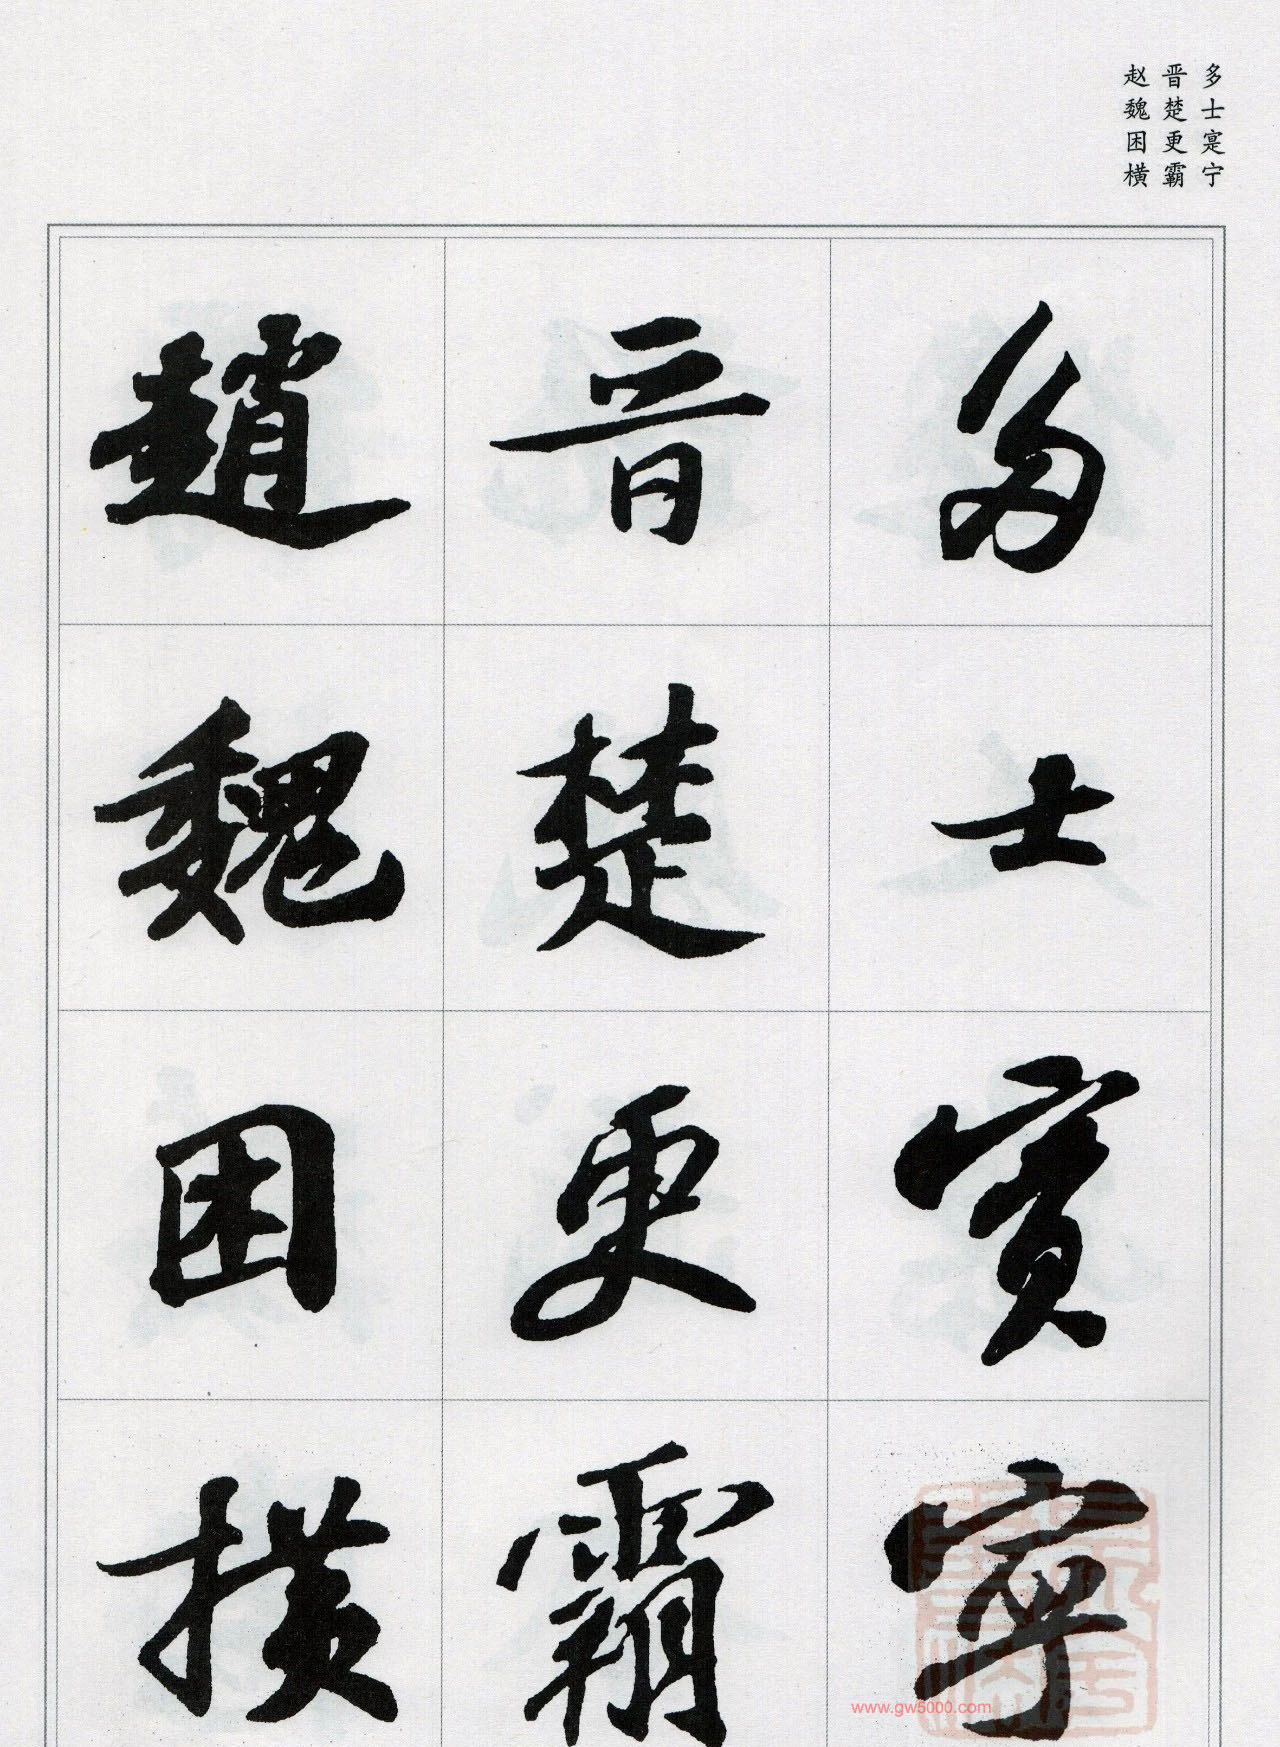 多士寔宁
晋楚更霸
赵魏困横
多士寔寧
晋楚更霸
趙魏困横
www.gw5000.com